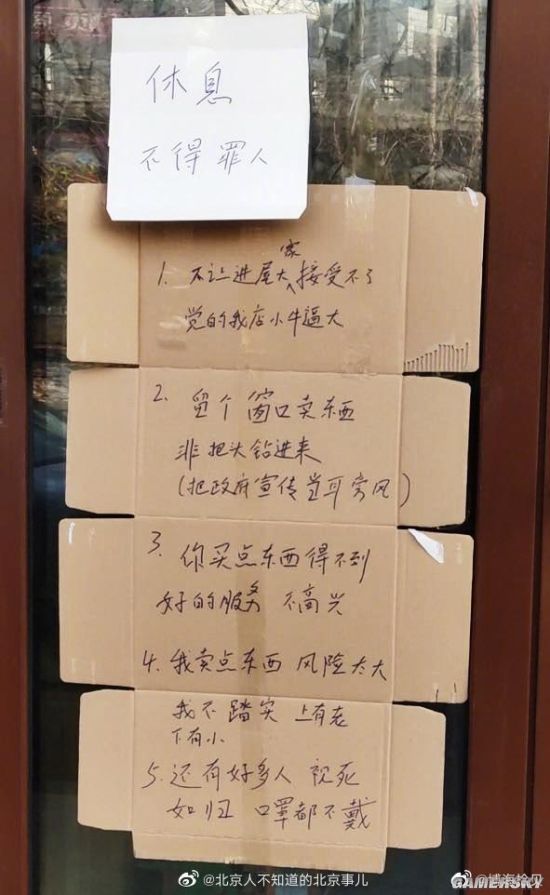 休息
不得罪人
1. 不让进屋大家接受不了
觉的我店小牛逼大
2. 留个窗口卖东西
非把头钻进来
(把政府宣传当耳旁风)
3. 你买点东西得不到
好的服务 不高兴
4. 我卖点东西 风险太大
我不踏实 上有老
下有小
5. 还有好多人 视死
如归 口罩都不戴
@北京人不知道的北京事儿
@博海拾贝
GAMERSKY